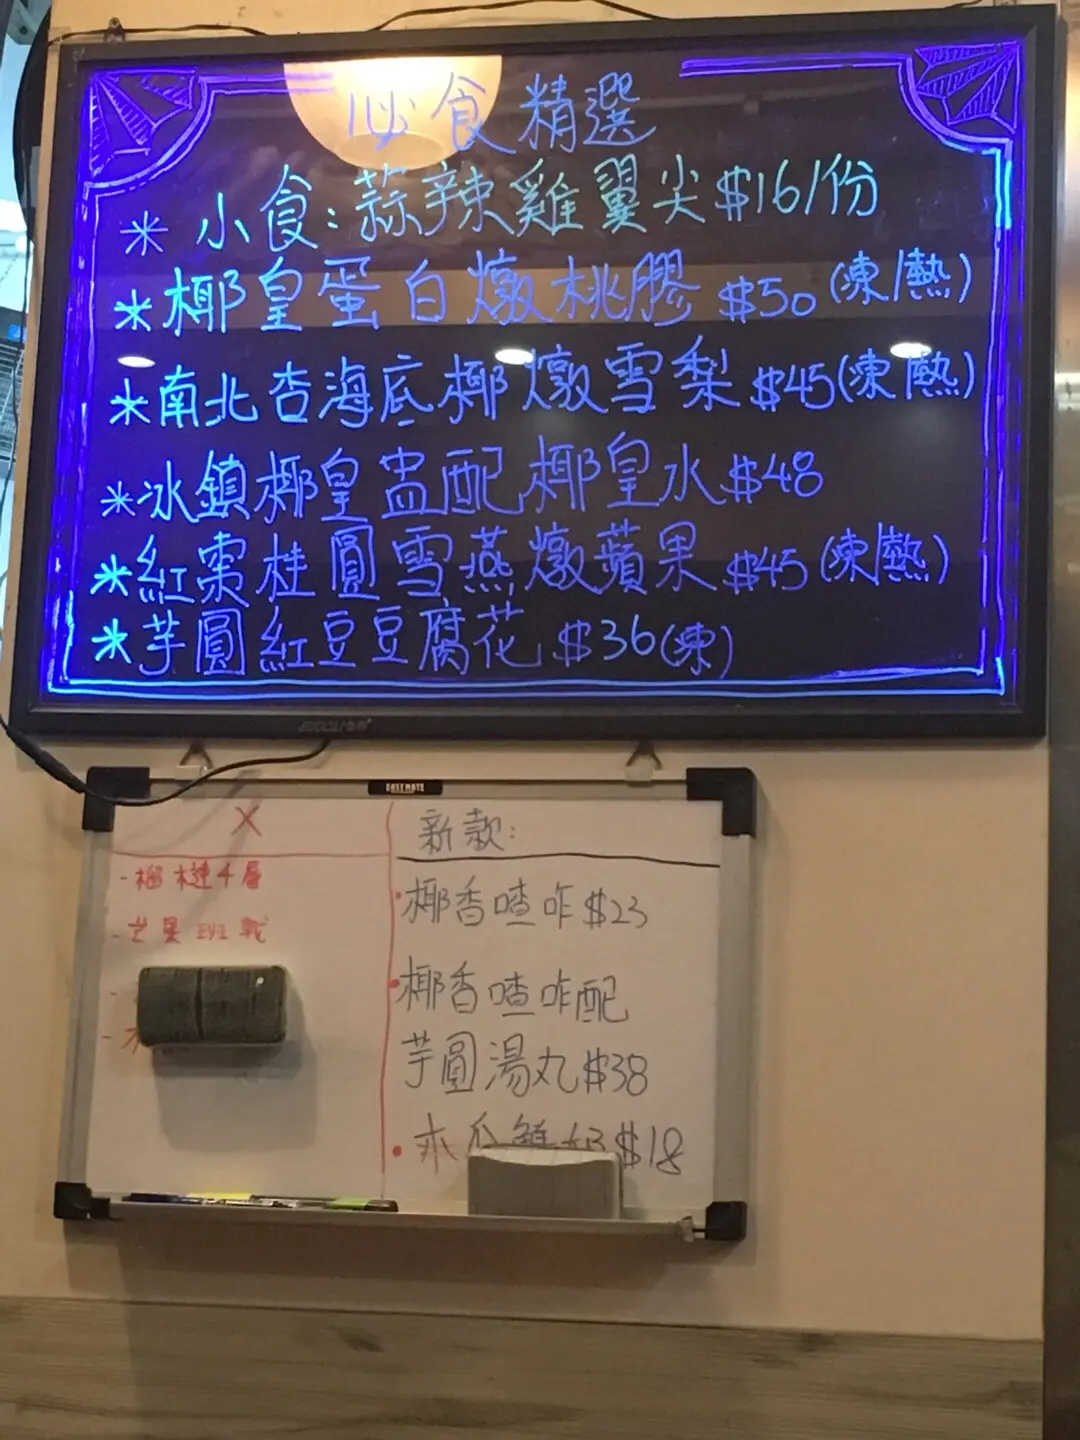 必食精選
* 小食:蒜辣雞翼尖$16/份
*椰皇蛋白燉桃膠 $50(凍/熱)
*南北杏海底椰燉雪梨$45(凍/熱)
*冰鎮椰皇盅配椰皇水$48
*紅棗桂圓雪燕燉蘋果$45(凍/熱)
*芋圓紅豆豆腐花$36(凍)
EASYMATE
X
-榴槤千層
-芒果班戟
新款:
•椰香喳咋$23
•椰香喳咋配
芋圓湯丸$38
•木瓜$18